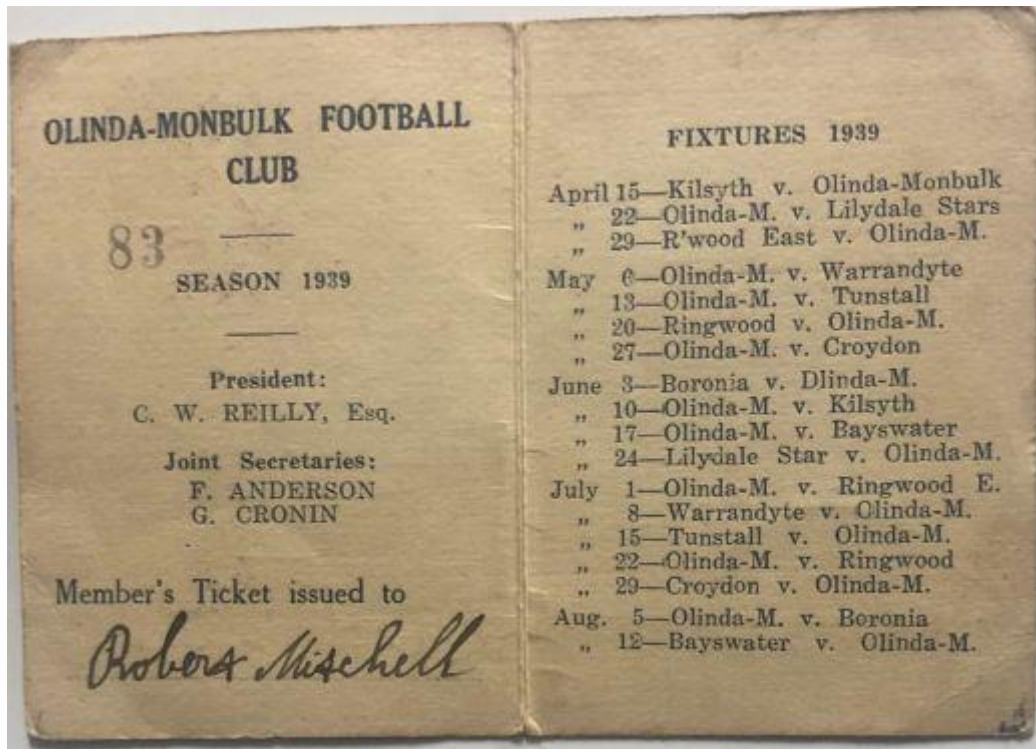 OLINDA-MONBULK FOOTBALL
CLUB
83
SEASON 1939
President:
C. W. REILLY, Esq.
Joint Secretaries:
F. ANDERSON
G. CRONIN
Member's Ticket issued to
Robert Mitchell
FIXTURES 1939
April 15—Kilsyth v. Olinda-Monbulk
„ 22—Olinda-M. v. Lilydale Stars
„ 29—R'wood East v. Olinda-M.
May 6—Olinda-M. v. Warrandyte
„ 13—Olinda-M. v. Tunstall
„ 20—Ringwood v. Olinda-M.
„ 27—Olinda-M. v. Croydon
June 3—Boronia v. Dlinda-M.
„ 10—Olinda-M. v. Kilsyth
„ 17—Olinda-M. v. Bayswater
„ 24—Lilydale Star v. Olinda-M.
July 1—Olinda-M. v. Ringwood E.
„ 8—Warrandyte v. Olinda-M.
„ 15—Tunstall v. Olinda-M.
„ 22—Olinda-M. v. Ringwood
„ 29—Croydon v. Olinda-M.
Aug. 5—Olinda-M. v. Boronia
„ 12—Bayswater v. Olinda-M.